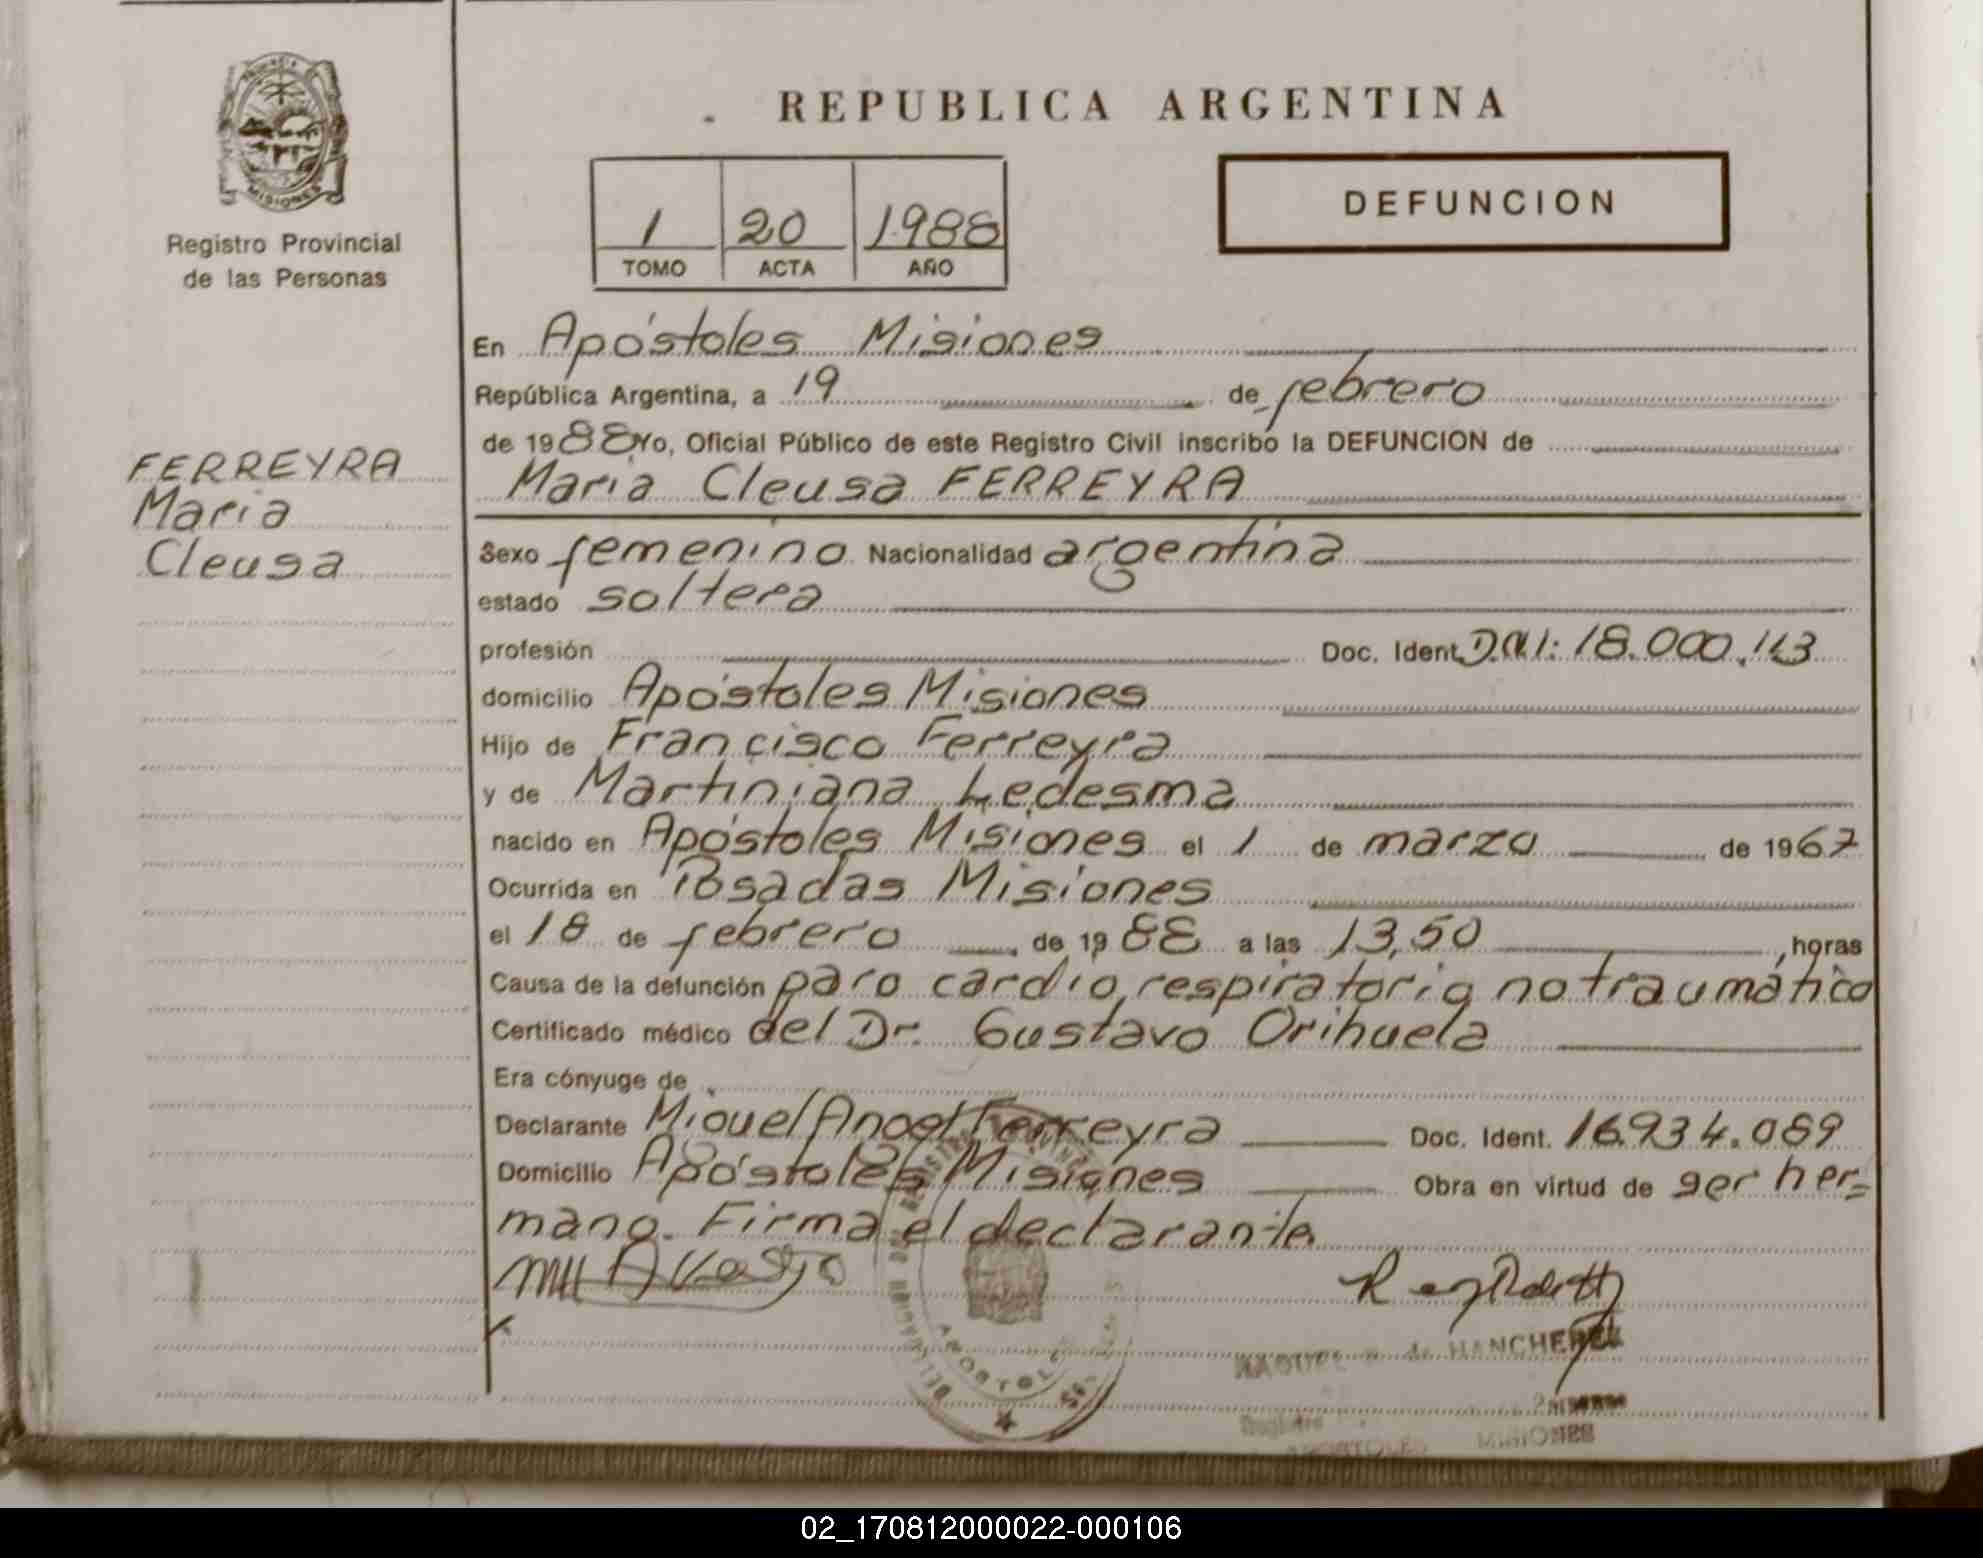 MISIONES
Registro Provincial
de las Personas
FERREYRA
Maria
Cleusa
REPUBLICA ARGENTINA
1 20 1988
TOMO ACTA AÑO
DEFUNCION
En Apóstoles Misiones
República Argentina, a 19 de febrero
de 1988 Yo, Oficial Público de este Registro Civil inscribo la DEFUNCION de
Maria Cleusa FERREYRA
Sexo femenino Nacionalidad argentina
estado soltera
profesión Doc. Ident. D.N.I: 18.000.
domicilio Apóstoles Misiones
Hijo de Francisco Ferreyra
y de Martiniana Ledesma
nacido en Apóstoles Misiones el 1 de marzo de 1967
Ocurrida en Posadas Misiones
el 18 de febrero de 1988 a las 13,50 , horas
Causa de la defunción paro cardio respiratorio no traumático
Certificado médico del Dr. Gustavo Orihuela
Era cónyuge de
Declarante Miguel Angel Ferreyra Doc. Ident. 16.934.089
Domicilio Apóstoles Misiones Obra en virtud de ser her=
mano. Firma el declarante
de
MISIONES
02_170812000022-000106